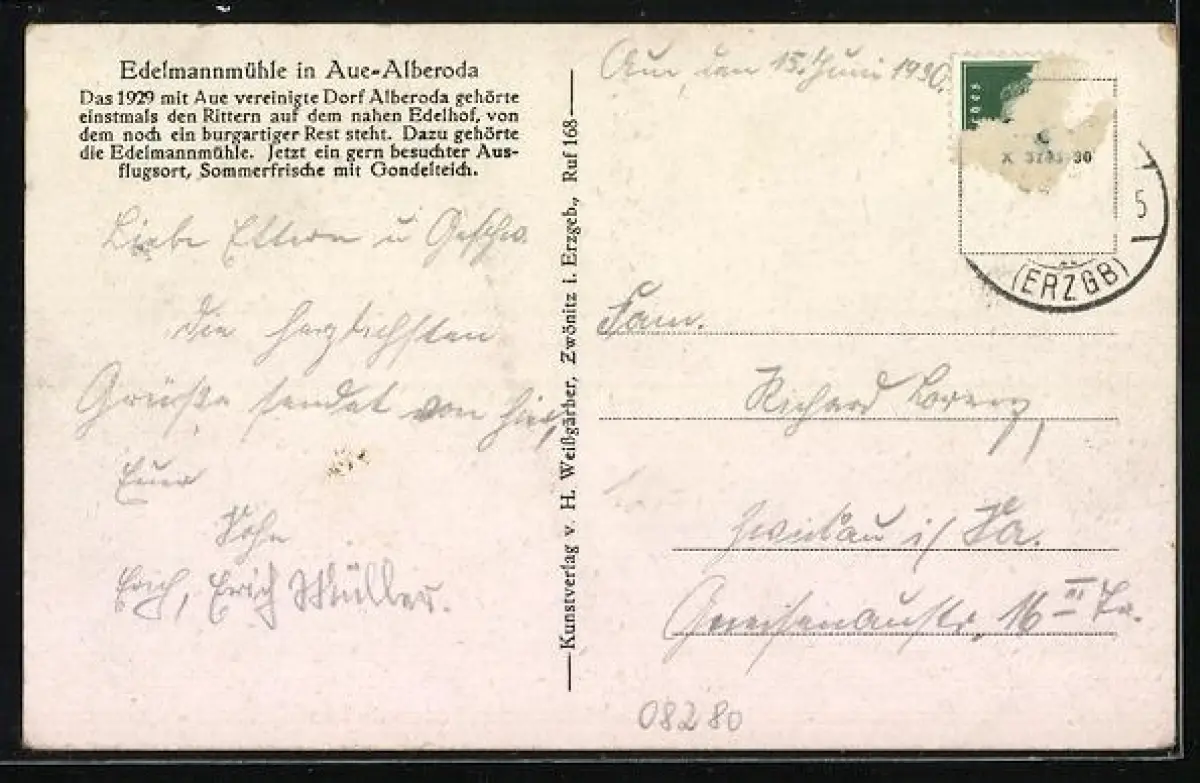 Edelmannmühle in Aue-Alberoda
Das 1929 mit Aue vereinigte Dorf Alberoda gehörte
einstmals den Rittern auf dem nahen Edelhof, von
dem noch ein burgartiger Rest steht. Dazu gehörte
die Edelmannmühle. Jetzt ein gern besuchter Aus-
flugsort, Sommerfrische mit Gondelteich.
Liebe Eltern u Geschw.
die herzlichsten
Grüße sendet von hier,
Euer
Sohn
Erich, Erich Müller.
Kunstverlag v. H. Weißgärber, Zwönitz i. Erzgeb., Ruf 168
Aue, den 15. Juni 1930.
X 37 30
5
(ERZGB)
Fam.
Richard Lorenz,
Zwickau i/ Sa.
Gneisenaustr. 16 III
08280